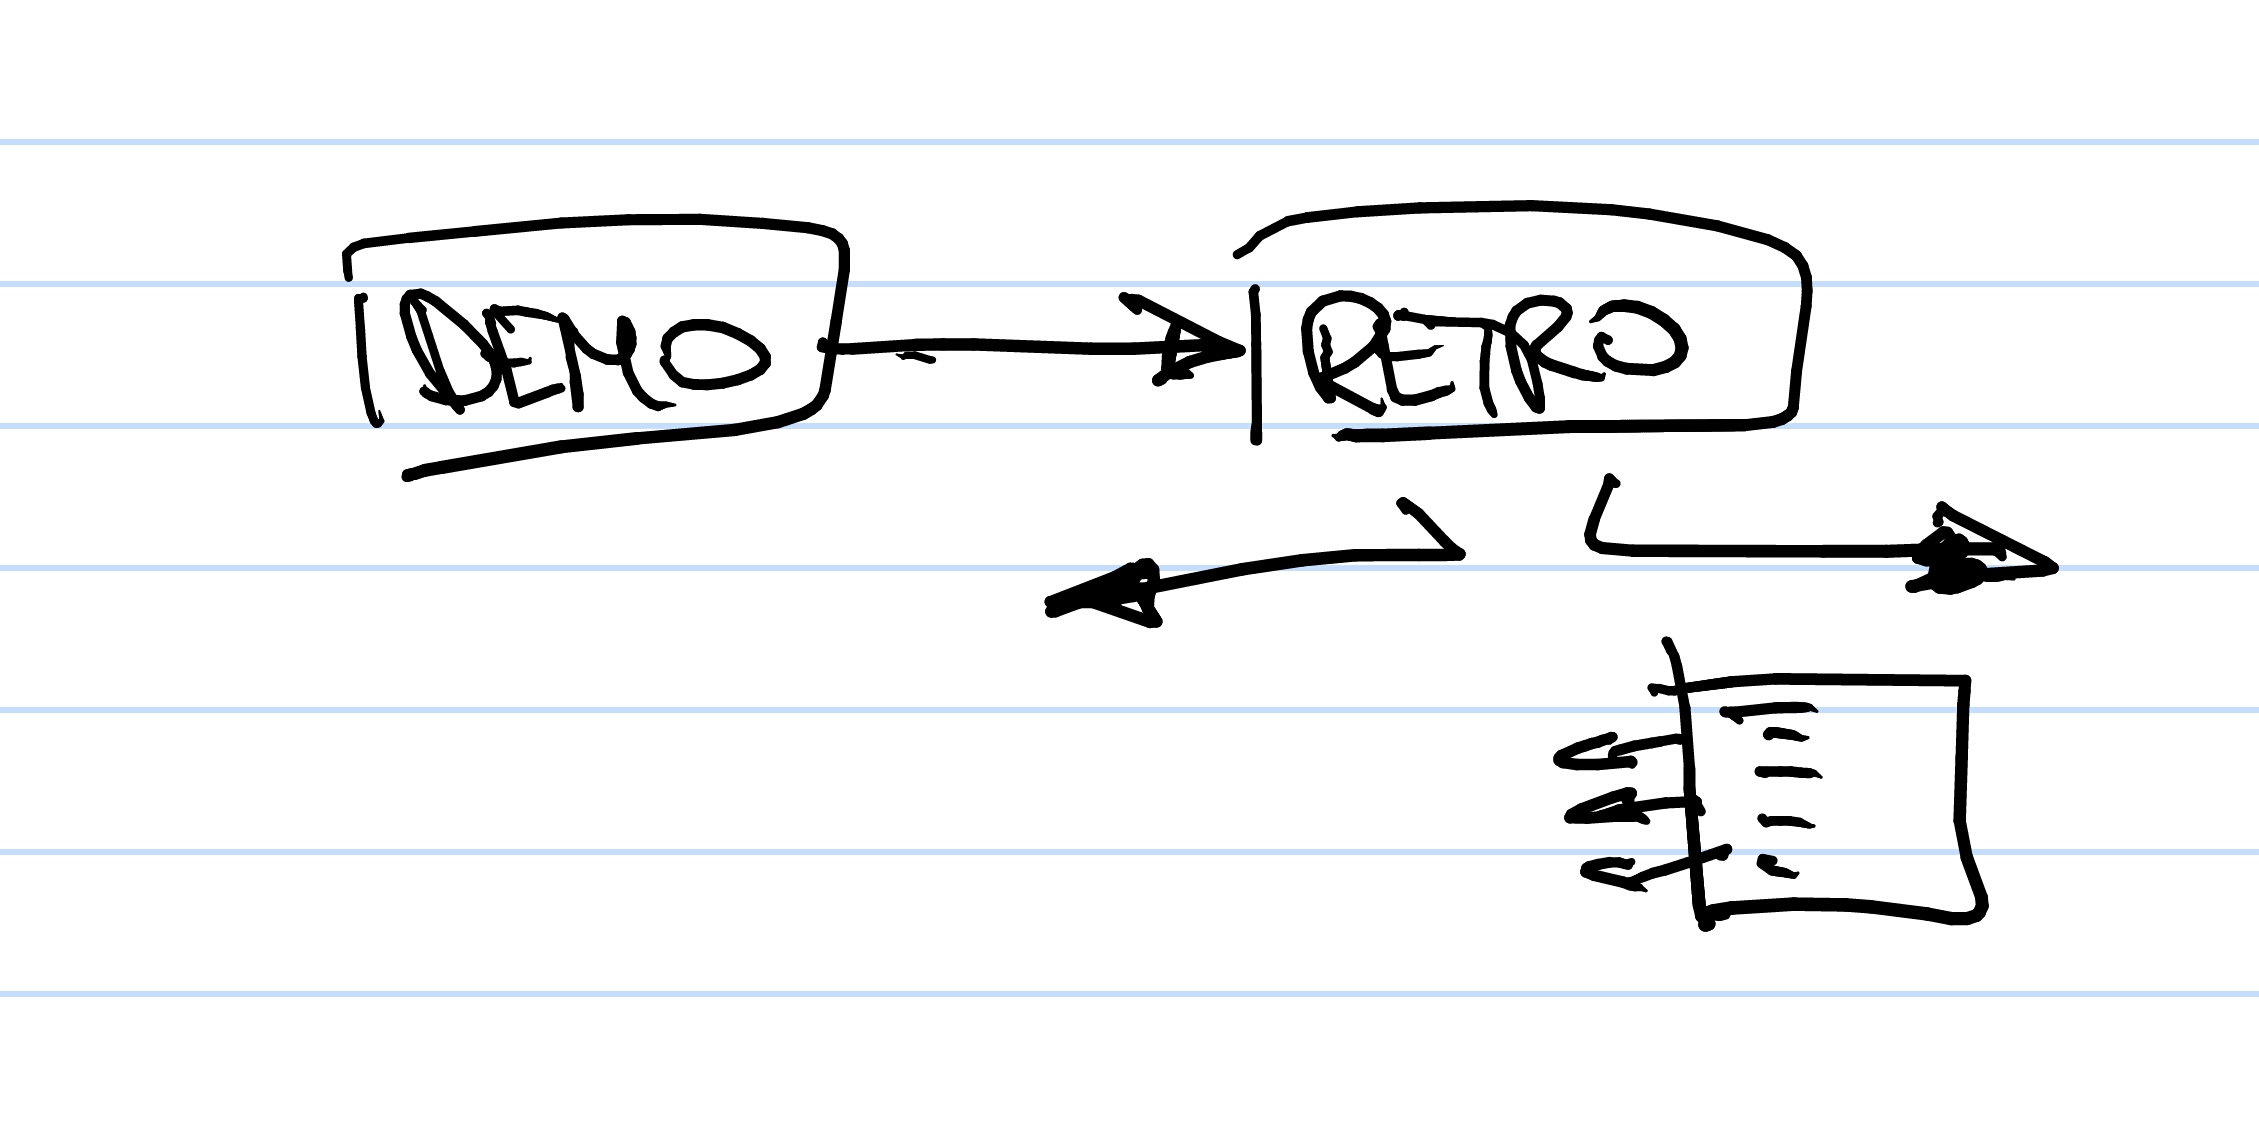 DEMO
RETRO